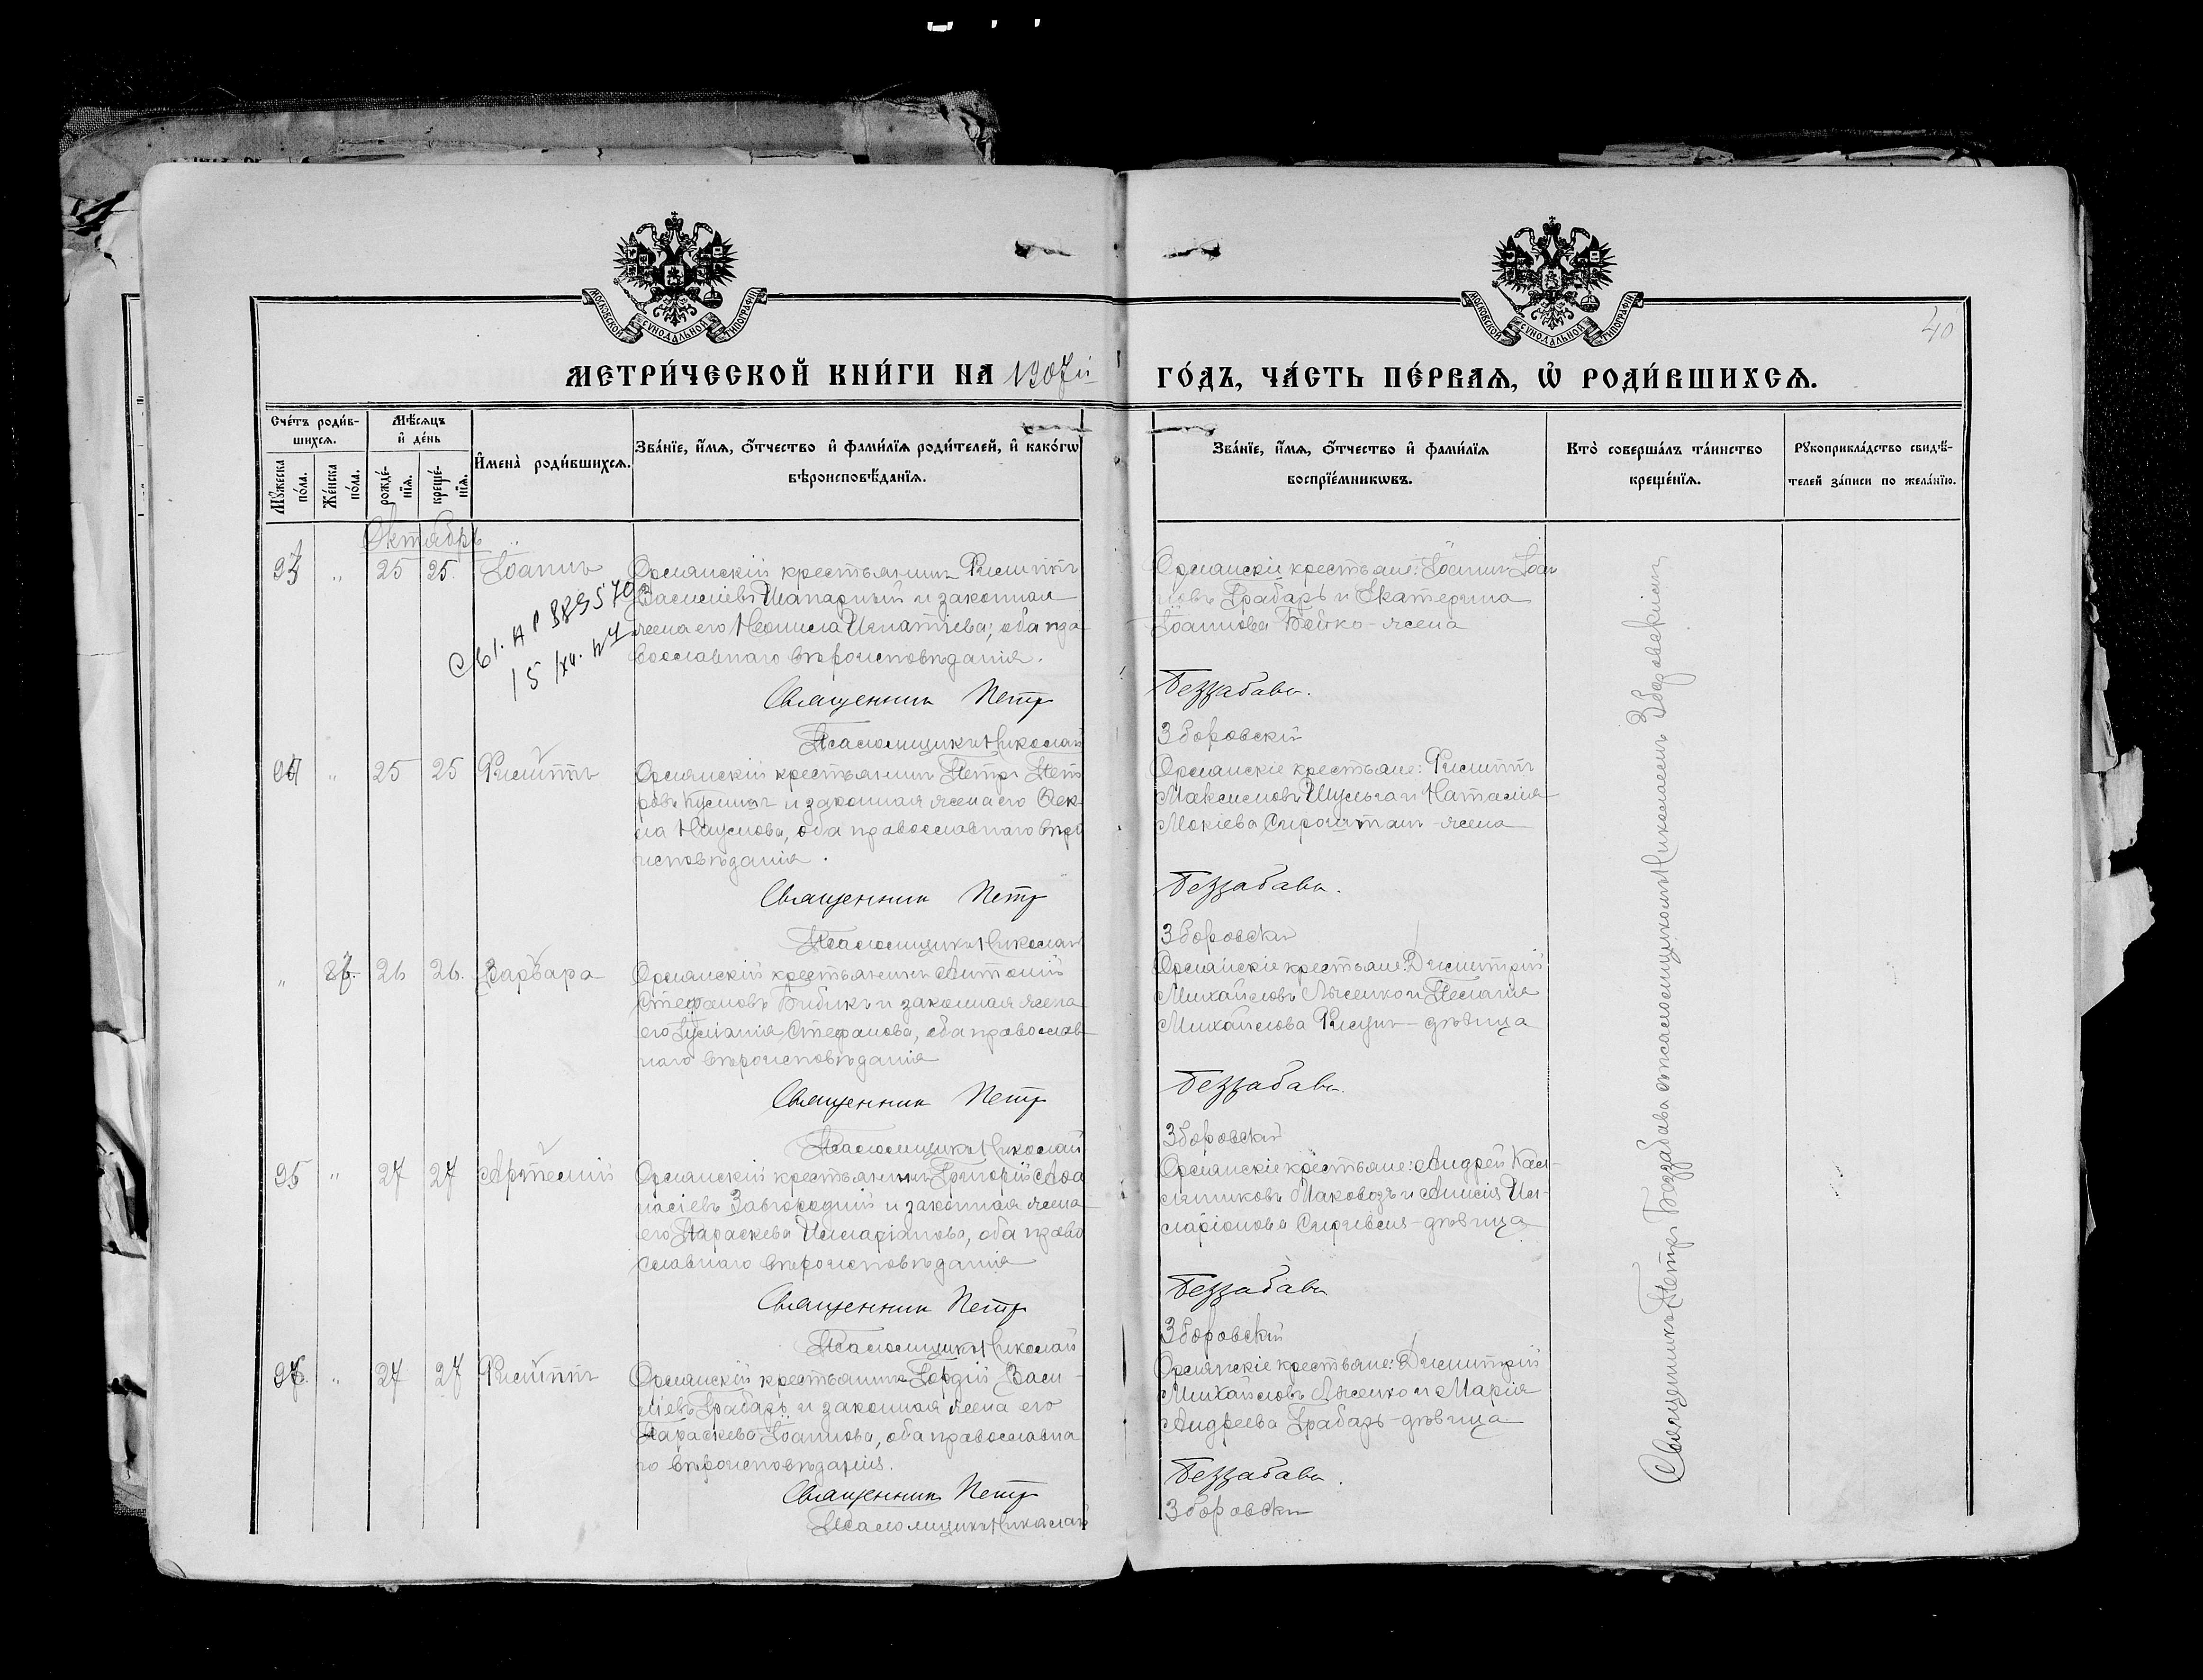 МОСКОВСКОЙ СѴНОДАЛЬНОЙ ТИПОГРАФІИ
МОСКОВСКОЙ СѴНОДАЛЬНОЙ ТИПОГРАФІИ
40
МЕТРИ́ЧЕСКОЙ КНИ́ГИ НА 1907й
ГО́ДЪ, ЧА́СТЬ ПЕ́РВАѦ, Ѽ РОДИ́ВШИХСѦ.
Сче́тъ роди́в-
шихсѧ.
Мꙋ́жеска по́ла.
Же́нска по́ла.
Мѣ́сѧцъ и҆ де́нь
рожде́-нїѧ.
креще́-нїѧ.
И҆мена̀ роди́вшихсѧ.
Зва́нїе, и҆́мѧ, ѻ҆́тчество и҆ фами́лїѧ роди́телей, и҆ како́гѡ
вѣроисповѣ́данїѧ.
Зва́нїе, и҆́мѧ, ѻ҆́тчество и҆ фами́лїѧ
воспрїе́мникѡвъ.
Кто̀ соверша́лъ та́инство
креще́нїѧ.
Рꙋкоприкла́дство свидѣ́-
телей за́писи по жела́нїю.
Октябрь
93 " 25 25. Іоаннъ
Орлянскій крестьянинъ Филиппъ
Василіевъ Шапарный и законная
жена его Неонила Игнатіева; оба пра
вославнаго вѣроисповѣданія.
Священник Петр
Псаломщикъ Николай
Орлянскіе крестьяне: Іоаннъ Іоан
новъ Грабарь и Екатерина
Іоаннова Бойко - жена
Беззабава.
Зборовскій
" 25 25 Филиппъ
Орлянскій крестьянинъ Петръ Пет
ровъ и законная жена его Фек
ла Наумова, оба православнаго вѣро
исповѣданія.
Священник Петр
Псаломщикъ Николай
Орлянскіе крестьяне: Филиппъ
Максимовъ Шульга и Наталія
Мокіева - жена
Беззабава.
Зборовскій
" 26 26. Варвара
Орлянскій крестьянинъ Антоній
Стефановъ Бибикъ и законная жена
его Іуліанія Стефанова, оба православ-
наго вѣроисповѣданія
Священник Петр
Псаломщикъ Николай
Орлянскіе крестьяне: Димитрій
Михайловъ Лысенко и Пелагія
Михайлова - дѣвица
Беззабава.
Зборовскій
95 " 27 27 Артемій
Орлянскій крестьянинъ Григорій Афа
насіевъ Завгородній и законная жена
его Параскева Илларіонова, оба право
славнаго вѣроисповѣданія
Священник Петр
Псаломщикъ Николай
Орлянскіе крестьяне: Андрей Кал-
линиковъ Маковозъ и Анисія Ил-
ларіонова - дѣвица
Беззабава
Зборовскій
96. " 27 27 Филиппъ
Орлянскій крестьянинъ Гордій Васи-
ліевъ Грабарь и законная жена его
Параскева Іоаннова, оба православна
го вѣроисповѣданія.
Священник Петр
Псаломщикъ Николай
Орлянскіе крестьяне: Димитрій
Михайловъ Лысенко и Марія
Андреева Грабарь - дѣвица
Беззабава.
Зборовскій
Священникъ Петръ Беззабава съ псаломщикомъ Николаемъ Зборовскимъ